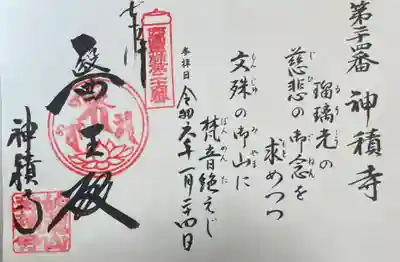 第二十四番 神積寺
瑠璃光の
慈悲の御念を
求めつつ
文殊の御山に
梵音絶えじ
参拝日 令和六年一月二十四日
奉拝
醫王殿
神積寺